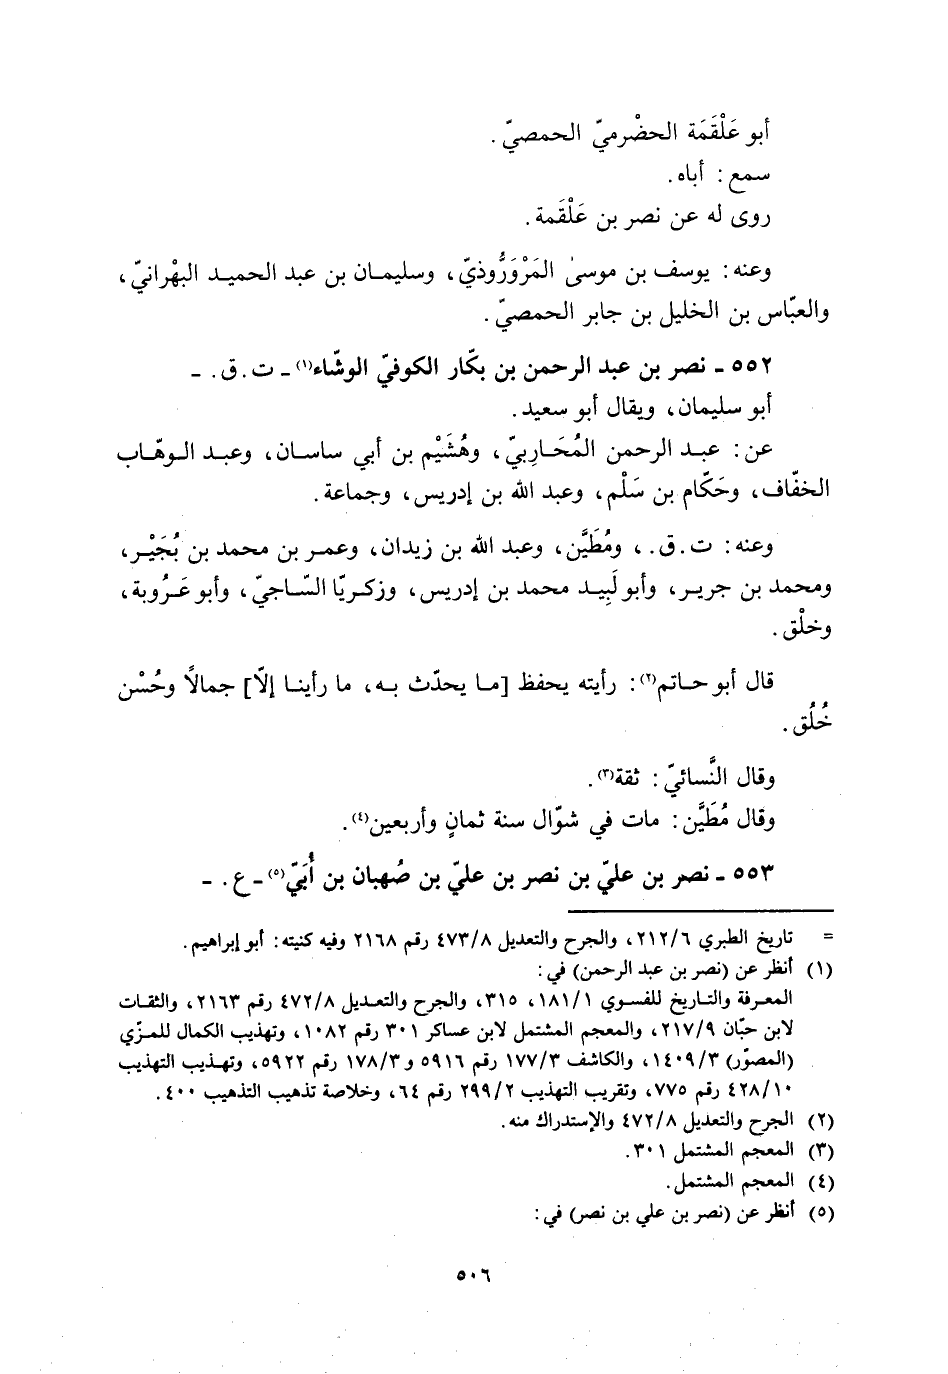 أبو عَلْقَمَة الحضْرميّ الحمصيّ.
سمع: أباه.
روى له عن نصر بن عَلْقمة.
وعنه: يوسف بن موسىٰ المَرْوَرُّوذيّ، وسليمان بن عبد الحميد البهْرانيّ،
والعبّاس بن الخليل بن جابر الحمصيّ.
٥٥٢ ـ نصر بن عبد الرحمن بن بكّار الكوفيّ الوشّاء(١) ـ ت. ق. ـ
أبو سليمان، ويقال أبو سعيد.
عن: عبد الرحمن المُحَاربيّ، وهُشَيْم بن أبي ساسان، وعبد الوهّاب
الخفّاف، وحَكّام بن سَلْم، وعبد الله بن إدريس، وجماعة.
وعنه: ت. ق.، ومُطَيَّن، وعبد الله بن زيدان، وعمر بن محمد بن بُجَيْر،
ومحمد بن جرير، وأبو لَبِيد محمد بن إدريس، وزكريّا السّاجيّ، وأبو عَرُوبة،
وخلْق.
قال أبو حاتم(٢): رأيته يحفظ [ما يحدّث به، ما رأينا إلّا] جمالًا وحُسْن
خُلُق.
وقال النَّسائيّ: ثقة(٣).
وقال مُطَيَّن: مات في شوّال سنة ثمانٍ وأربعين(٤).
٥٥٣ ـ نصر بن عليّ بن نصر بن عليّ بن صُهبان بن أُبَيّ(٥) ـ ع. ـ
= تاريخ الطبري ٢١٢/٦، والجرح والتعديل ٤٧٣/٨ رقم ٢١٦٨ وفيه كنيته: أبو إبراهيم.
(١) أنظر عن (نصر بن عبد الرحمن) في:
المعرفة والتاريخ للفسوي ١٨١/١، ٣١٥، والجرح والتعديل ٤٧٢/٨ رقم ٢١٦٣، والثقات
لابن حبّان ٢١٧/٩، والمعجم المشتمل لابن عساكر ٣٠١ رقم ١٠٨٢، وتهذيب الكمال للمزّي
(المصوّر) ١٤٠٩/٣، والكاشف ١٧٧/٣ رقم ٥٩١٦ و ١٧٨/٣ رقم ٥٩٢٢، وتهذيب التهذيب
٤٢٨/١٠ رقم ٧٧٥، وتقريب التهذيب ٢٩٩/٢ رقم ٦٤، وخلاصة تذهيب التذهيب ٤٠٠.
(٢) الجرح والتعديل ٤٧٢/٨ والإستدراك منه.
(٣) المعجم المشتمل ٣٠١.
(٤) المعجم المشتمل.
(٥) أنظر عن (نصر بن علي بن نصر) في:
٥٠٦